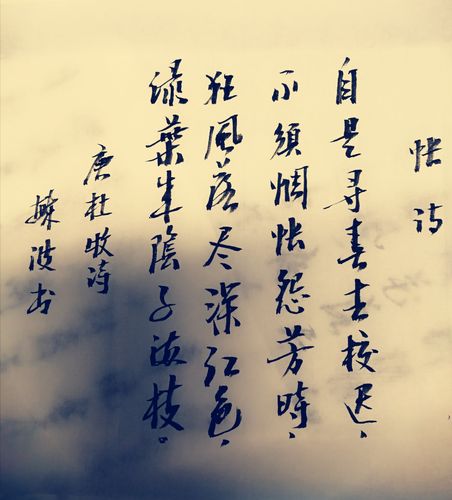 怅诗
自是寻春去校迟、
不須惆怅怨芳時、
狂風落尽深红色、
绿葉成陰子满枝。
唐杜牧诗
波书